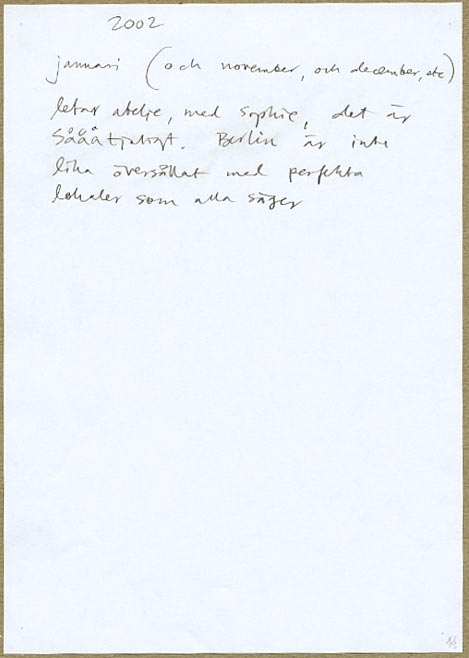 2002
januari (och november, och december, etc)
letar ateljé, med Sophie, det är
Såååtjatigt. Berlin är inte
lika översållat med perfekta
lokaler som alla säger